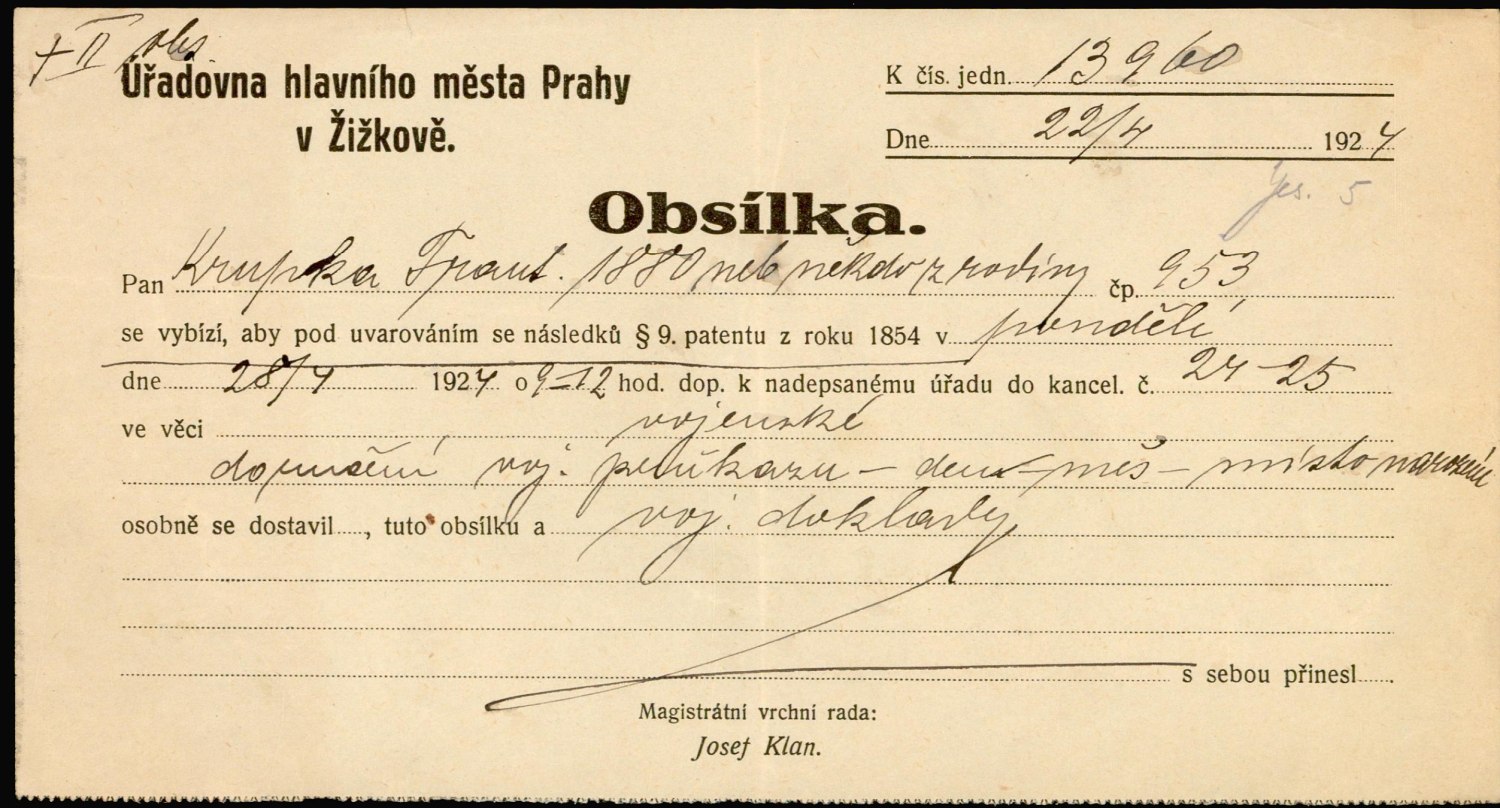 + II obs
Úřadovna hlavního města Prahy
v Žižkově.
K čís. jedn. 13960
Dne 22/4 1924
5
Obsílka.
Pan Krupka Frant. 1880 neb někdo z rodiny čp. 953
se vybízí, aby pod uvarováním se následků § 9. patentu z roku 1854 v pondělí
dne 28/4 1924 o 9–12 hod. dop. k nadepsanému úřadu do kancel. č. 24–25
ve věci vojenské
doručení voj. průkazu – den – měs – místo narození
osobně se dostavil....., tuto obsílku a voj. doklady
s sebou přinesl......
Magistrátní vrchní rada:
Josef Klan.